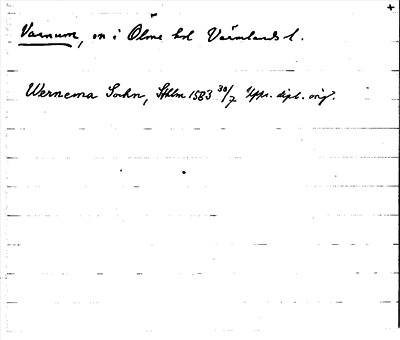 Varnum, sn i Ölme hd Värmlands l.
Wernema Sochn, Sthlm 1583 30/7 Upps. dipl. orig.